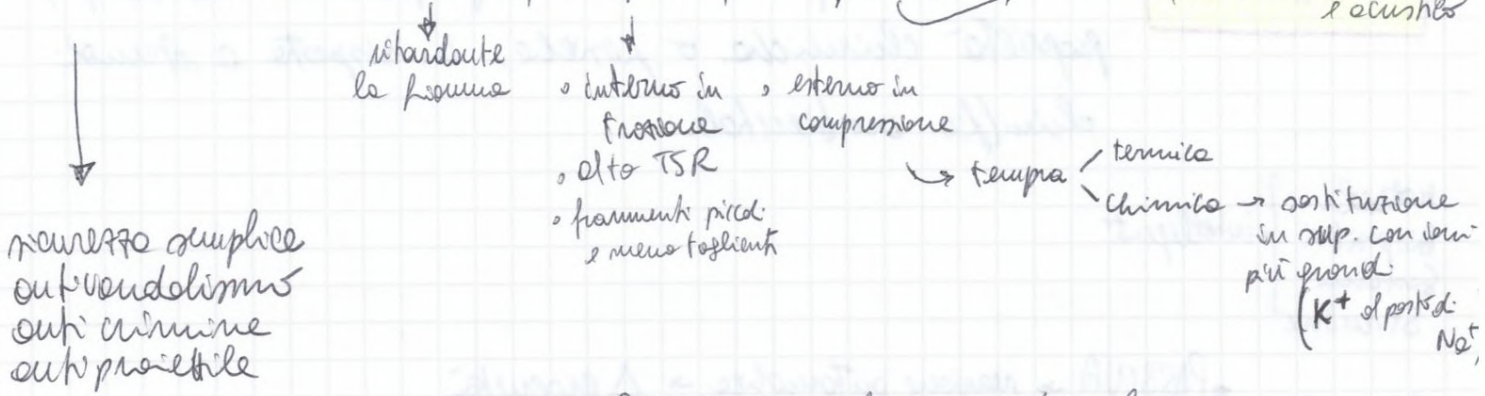 e acustico
ritardante
la fiamma
◦ interno in
trazione
◦ alto TSR
◦ frammenti piccoli
e meno taglienti
◦ esterno in
compressione
↳ tempra
termica
chimica → sostituzione
in sup. con ioni
più grandi
(K⁺ al posto di
Na⁺,
sicurezza semplice
antivandalismo
anticrimine
antiproiettile